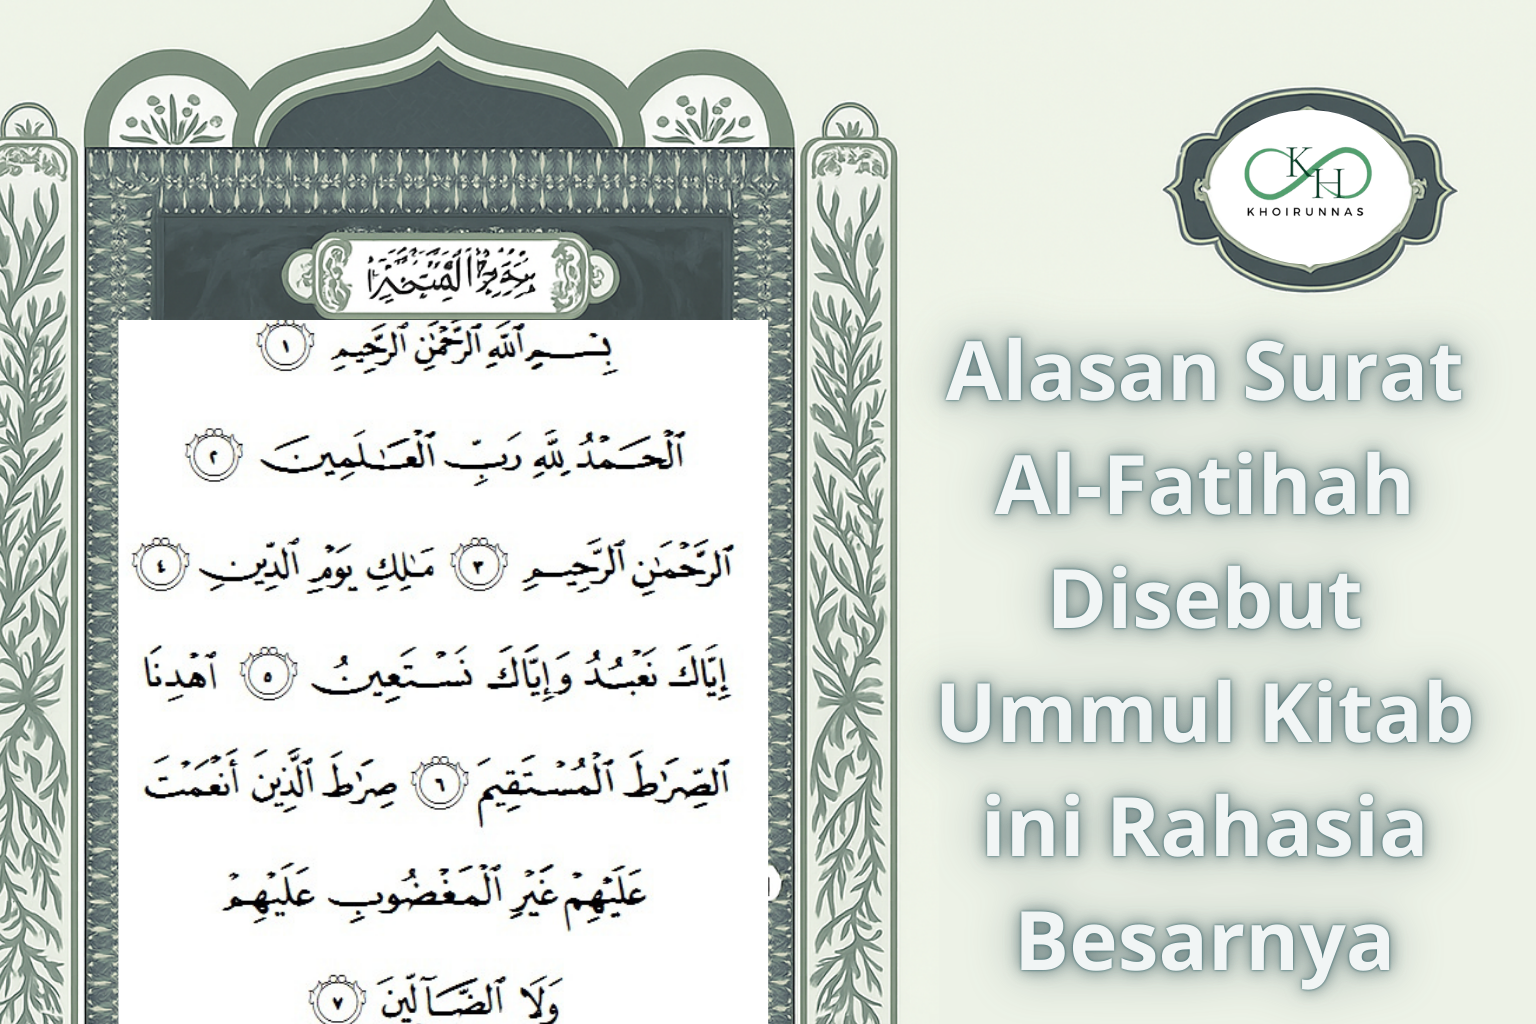 سورة الفاتحة
بِسْمِ ٱللَّهِ ٱلرَّحْمَٰنِ ٱلرَّحِيمِ ١
ٱلْحَمْدُ لِلَّهِ رَبِّ ٱلْعَٰلَمِينَ ٢
ٱلرَّحْمَٰنِ ٱلرَّحِيمِ ٣ مَٰلِكِ يَوْمِ ٱلدِّينِ ٤
إِيَّاكَ نَعْبُدُ وَإِيَّاكَ نَسْتَعِينُ ٥ ٱهْدِنَا
ٱلصِّرَٰطَ ٱلْمُسْتَقِيمَ ٦ صِرَٰطَ ٱلَّذِينَ أَنْعَمْتَ
عَلَيْهِمْ غَيْرِ ٱلْمَغْضُوبِ عَلَيْهِمْ
وَلَا ٱلضَّآلِّينَ ٧
KH
KHOIRUNNAS
Alasan Surat
Al-Fatihah
Disebut
Ummul Kitab
ini Rahasia
Besarnya